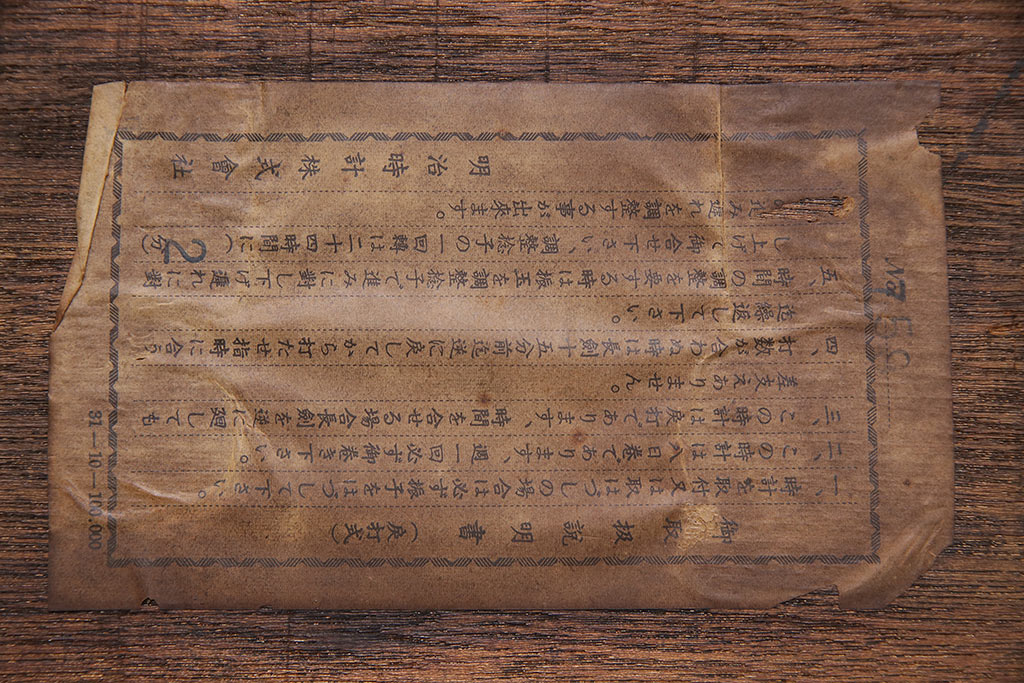 御取扱説明書(戻打式)
一、時計取付又は取はづしの場合は必ず振子をはづして下さい。
二、この時計は八日巻であります、週一回必ず御巻き下さい。
三、この時計は戻打であります、時間を合せる場合長劍を逆に廻しても
差支えありません。
四、打数が合わぬ時は長劍十五分前迄逆に戻してから打たせ指時に合う
迄繰返して下さい。
五、時間の調整を要する時は振玉を調整捻子で進みに對し下げ遅れに對
し上げて御合せ下さい、調整捻子の一回轉は二十四時間に(2分
の進み遅れを調整する事が出来ます。
明治時計株式會社
31—10—100.000